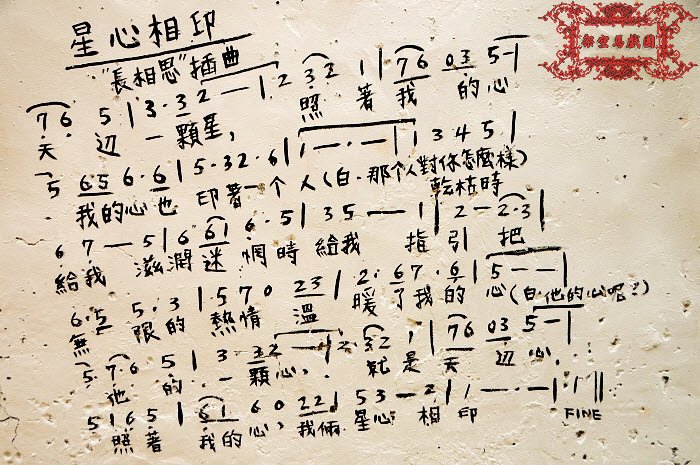 星心相印
"長相思"插曲
7 6 5 | 3 · 3 2 — — | 2 3 2 1 | 7 6 0 3 5 — |
天 辺 一顆星, 照 著 我 的 心
5 6 5 6 · 6 | 5 · 3 2 · 6 | 1 — · — · | 1 3 4 5 |
我的心也 印著一个 人(白·那个人對你怎麼樣) 乾枯時
6 7 — 5 | 6 6 1 6 · 5 | 3 5 — — 1 | 2 — 2 · 3 |
給我 滋潤迷 惘時 給我 指 引 把
6 · 5 5 · 3 | · 5 7 0 2 3 | 2 · 6 7 · 6 | 5 — — |
無 限的 熱情 溫 暖 了我的 心(白·他的心呢?)
5 7 6 5 | 3 3 2 — — | 2 · 3 2 1 | 7 6 0 3 5 — |
他 的 一 顆心, 就 是 天 辺 心,
5 1 6 5 | 6 1 6 0 2 2 | 5 3 — 2 | 1 — — — | · 1 ||
照著 我的心, 我倆 星心 相 印 FINE